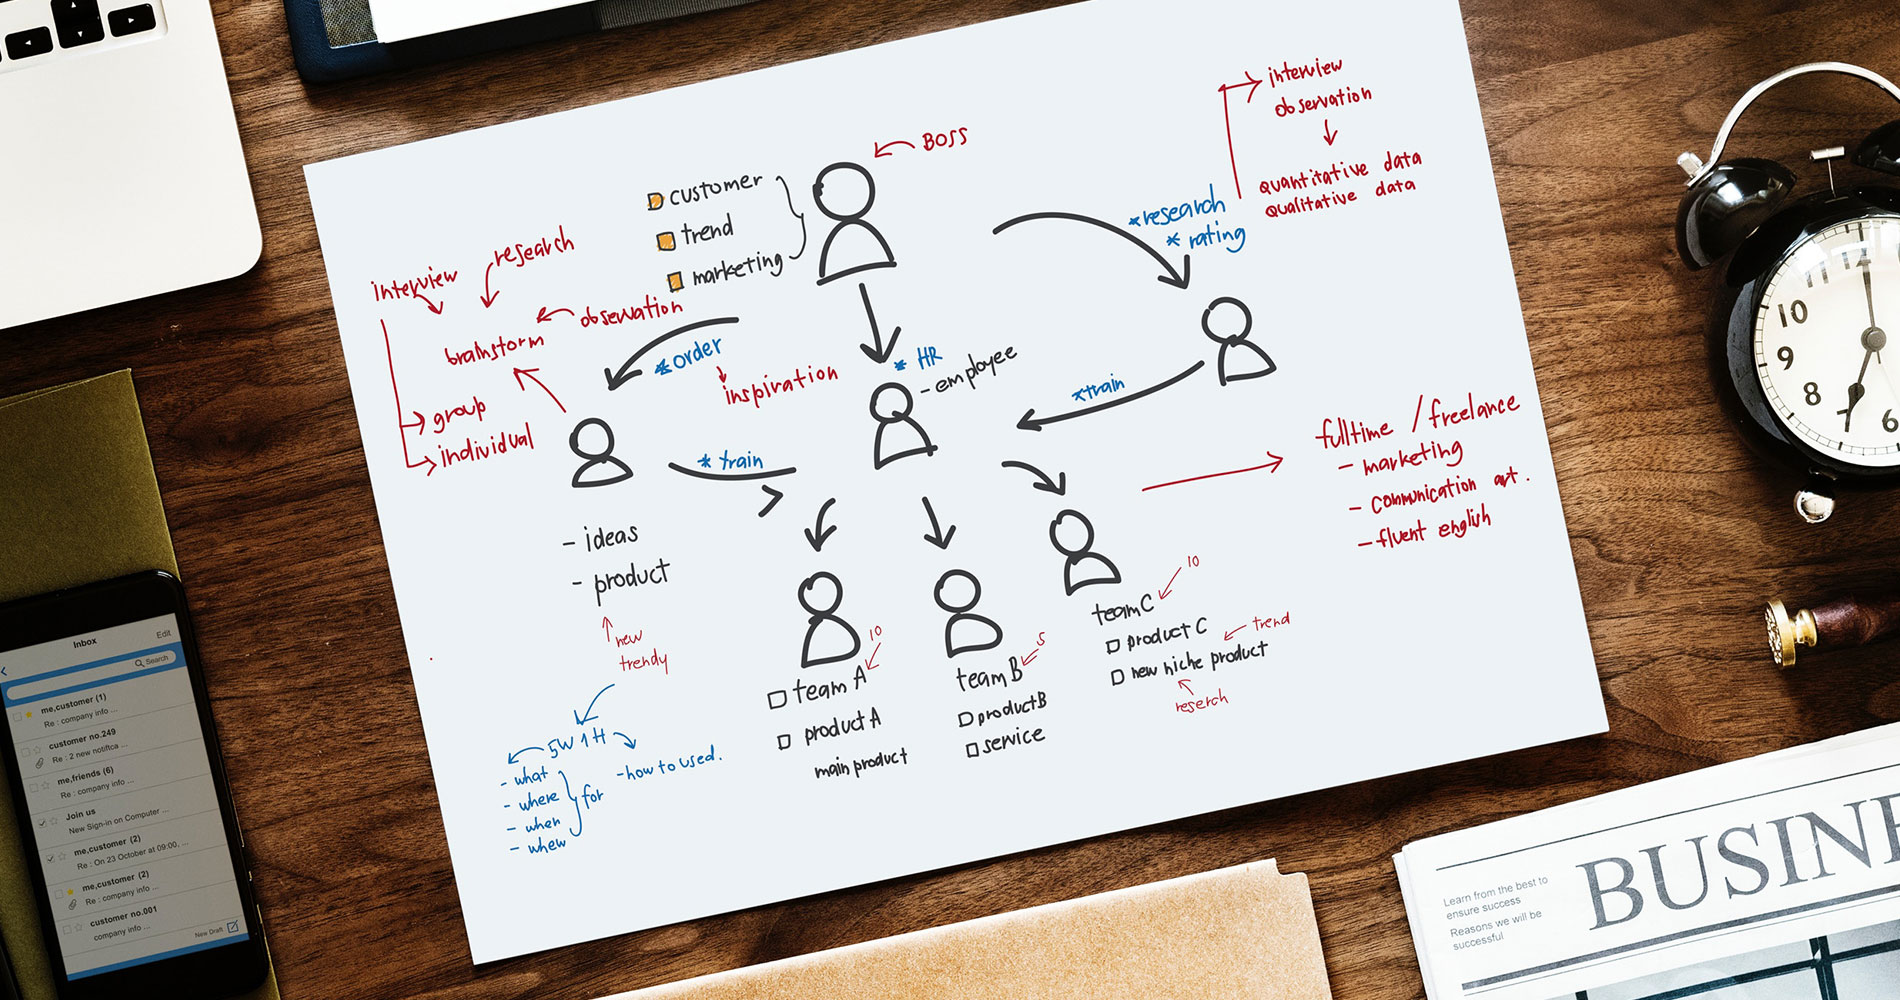 BOSS
customer
trend
marketing
interview
observation
quantitative data
qualitative data
*research
* rating
research
interview
observation
brainstorm
group
individual
*order
inspiration
* HR
- employee
*train
* train
fulltime / freelance
- marketing
- communication art.
- fluent english
- ideas
- product
new
trendy
5W 1H
- what
- where
- when
- whew
for
- how to used.
10
team A
product A
main product
5
team B
product B
service
10
team C
product C
trend
new niche product
reserch
Inbox
Edit
Search
me,customer (1)
Re : company info ...
customer no.249
Re : 2 new notiftca ...
me,friends (6)
Re : company info ...
Join us
New Sign-in on Computer ...
me,customer (2)
Re : On 23 October at 09:00, ...
me,customer (2)
Re : company info ...
customer no.001
company info ...
New Draft
11
12
10
9
8
7
6
BUSINE
Learn from the best to
ensure success
Reasons we will be
successful